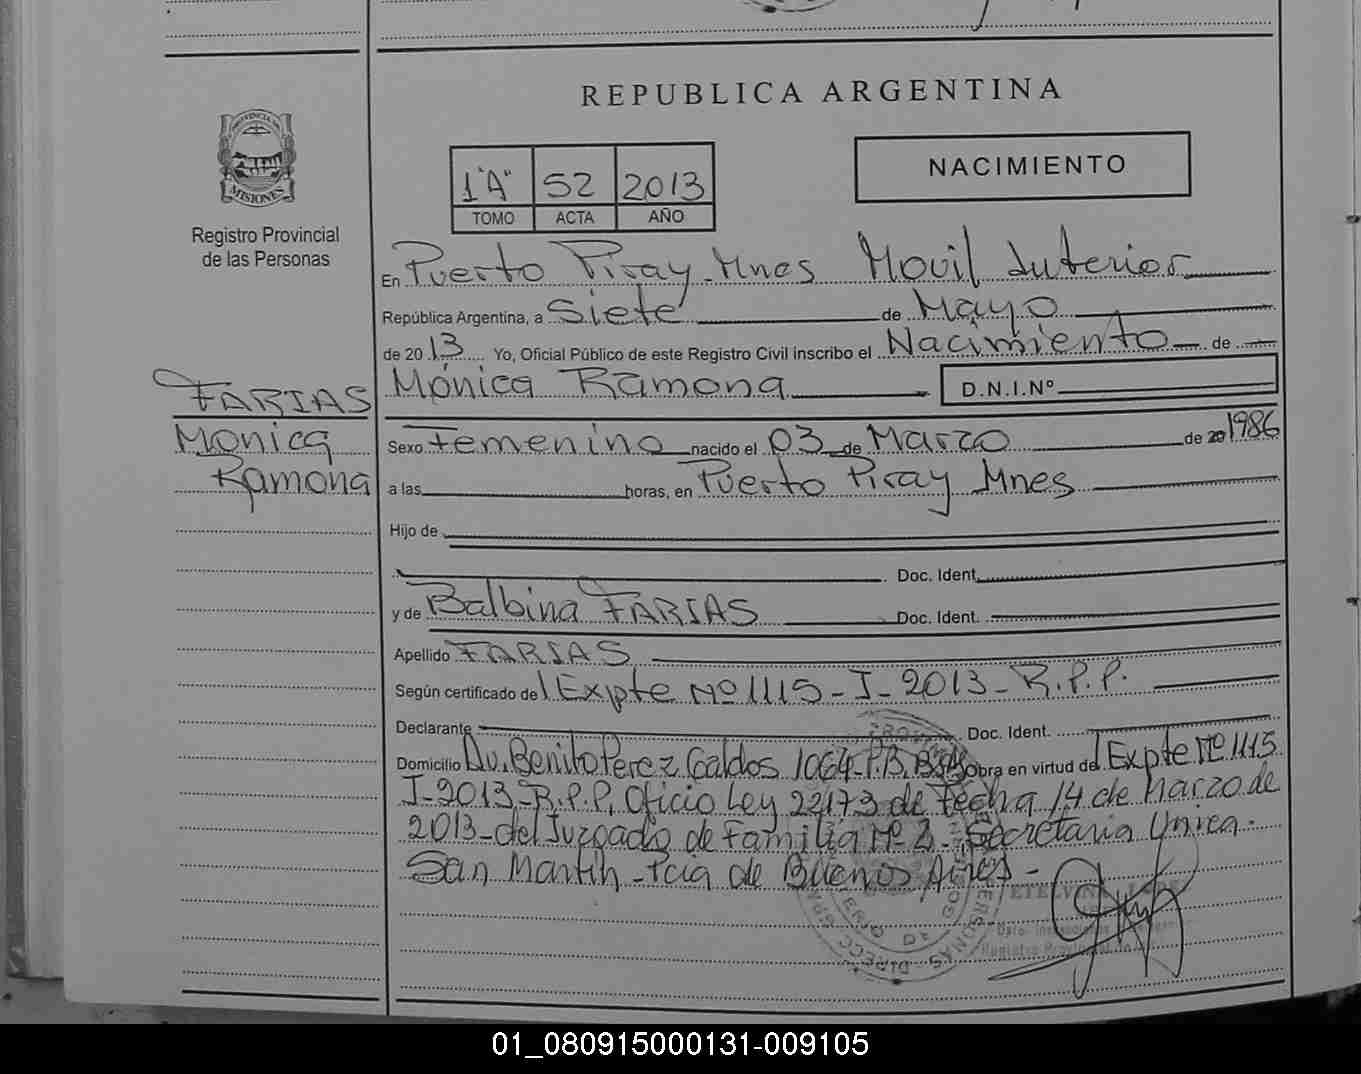 REPUBLICA ARGENTINA
PROVINCIA DE
MISIONES
Registro Provincial
de las Personas
1"A" 52 2013
TOMO ACTA AÑO
NACIMIENTO
En Puerto Piray - Mnes Movil Interior
República Argentina, a Siete de Mayo
de 2013 Yo, Oficial Público de este Registro Civil inscribo el Nacimiento de
Mónica Ramona D.N.I.Nº
FARIAS
Monica
Ramona
Sexo Femenino nacido el 03 de Marzo de 20 1986
a las horas, en Puerto Piray Mnes
Hijo de
Doc. Ident.
y de Balbina FARIAS Doc. Ident.
Apellido FARIAS
Según certificado de Expte Nº 1115 - I - 2013 - R.P.P.
Declarante Doc. Ident.
Domicilio Av. Benito Perez Galdos 1064 - P.B. Obra en virtud de Expte Nº 1115
I - 2013 - R.P.P, Oficio Ley 22173 de fecha 14 de marzo de
2013 - del Juzgado de Familia Nº 2 - Secretaria Unica -
San Martin - Pcia de Buenos Aires -
Registro
01_080915000131-009105